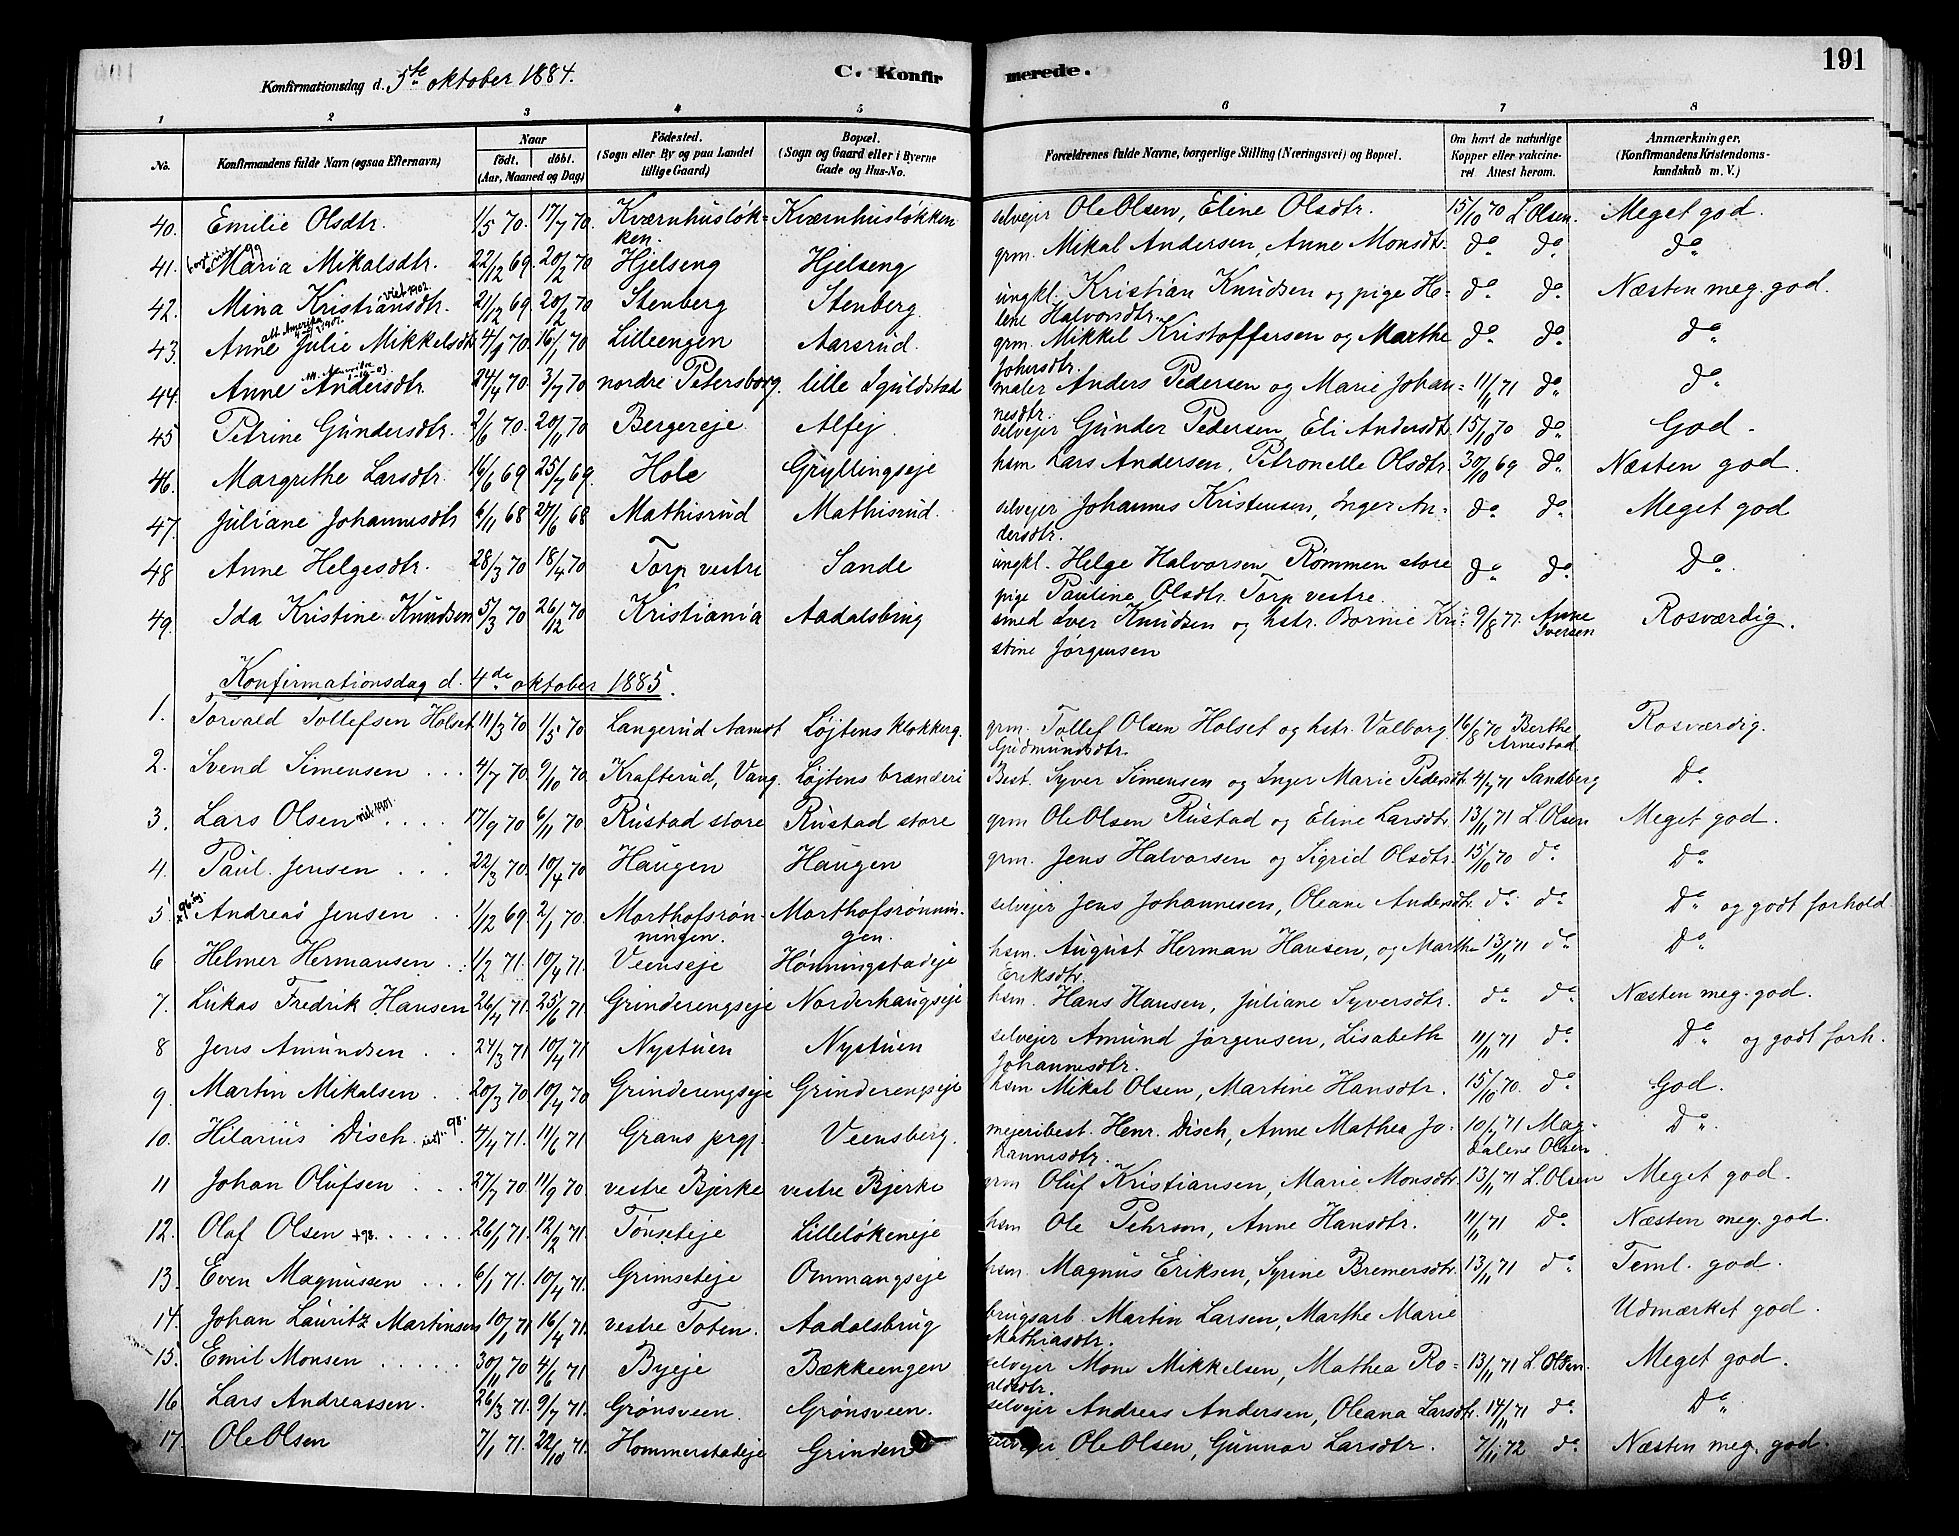 191
Konfirmationsdag d. 5te oktober 1884.
C. Konfir
merede.
1 2 3 4 5 6 7 8
No.
Konfirmandens fulde Navn (ogsaa Efternavn)
Naar
födt. döbt.
(Aar, Maaned og Dag)
Födested.
(Sogn eller By og paa Landet
tillige Gaard)
Bopæl.
(Sogn og Gaard eller i Byerne
Gade og Hus-No.
Forældrenes fulde Navne, borgerlige Stilling (Næringsvei) og Bopæl.
Om havt de naturlige
Kopper eller vakcine-
ret Attest herom.
Anmærkninger.
(Konfirmandens Kristendoms-
kundskab m. V.)
40. Emilie Olsdtr. 1/5 70. 17/7 70. Kværnhusløk- Kværnhusløkken selvejer Ole Olsen, Eline Olsdtr. 15/10 70 L Olsen. Meget god.
ken.
41. Maria Mikalsdtr. 22/12 69. 20/2 70 Hjelseng Hjelseng grm. Mikal Andersen, Anne Monsdtr. do. do. do.
42. Mina Kristiansdtr. viet 1902 21/12 69 20/2 70 Stenberg Stenberg ungkl. Kristian Knudsen og pige He- do. do. Næsten meg. god.
lene Halvorsdtr.
43. Anne Julie Mikkelsdtr 4/1 70. 16/1 70 Lilleengen Aarsrud. grm. Mikkel Kristoffersen og Marthe do. do. do.
Johersdtr.
44. Anne Andersdtr. 24/4 70. 3/7 70 nordre Petersborg. lille Iguldstad maler Anders Pedersen og Marie Johan- 11/11 71 do. do.
nesdtr.
45 Petrine Gundersdtr. 2/6 70. 20/11 70 Bergereje Alfej selvejer Gunder Pedersen, Eli Andersdtr. 15/10 70 do. God.
46. Margrethe Larsdtr. 16/6 69 25/7 69. Hole Gryllingseje hsm Lars Andersen, Petronelle Olsdtr. 30/10 69 do. Næsten god.
47. Juliane Johannesdtr 6/11 68 27/6 68 Mathisrud Mathisrud. selvejer Johannes Kristensen, Inger An- do. do. Meget god
dersdtr.
48 Anne Helgesdtr. 28/3 70 18/4 70 Torp vestre Sande ungkl. Helge Halvorsen Rømmen store do. do. Do.
pige Pauline Olsdtr. Torp vestre.
49. Ida Kristine Knudsen 5/3 70 26/12 70 Kristiania Aadalsbrug smed Iver Knudsen og hstr. Bornie Kri- 9/8 77. Anne Rosværdig.
stine Jørgensen Iversen
Konfirmationsdag d. 4de oktober 1885.
1. Torvald Tollefsen Holset 11/3 70 1/5 70 Langerud Aamot Løjtens klokkerg. grm. Tollef Olsen Holset og hstr. Valborg 16/8 70 Berthe Rosværdig.
Gudmundsdtr. Arnestad
2. Svend Simensen 4/7 70. 9/10 70 Krafterud, Vang. Løjtens brænderi Best. Syver Simensen og Inger Marie Pedersdtr. 4/7 71 Sandberg Do.
3. Lars Olsen viet 1901. 17/9 70 6/11 70. Rustad store Rustad store grm Ole Olsen Rustad og Eline Larsdtr. 13/11 71 L. Olsen Meget god.
4. Paul Jensen 22/3 70. 10/4 70 Haugen Haugen grm. Jens Halvorsen og Sigrid Olsdtr. 15/10 70 do. Do.
5 Andreas Jensen 1/12 69. 2/1 70. Morthofsrøn- Morthofsrønnin- selvejer Jens Johannesen, Oleane Andersdtr. do. do. Do. og godt forhold
ningen. gen.
6 Helmer Hermansen 1/2 71. 10/4 71. Veenseje Hønningstadeje hsm. August Herman Hansen, og Marthe 13/11 71 do. Do.
Eriksdtr.
7. Lukas Fredrik Hansen 26/4 71. 25/6 71. Grinderengseje Norderhaugseje hsm. Hans Hansen, Juliane Syversdtr. do. do. Næsten meg. god.
8 Jens Amundsen 27/3 71 10/4 71 Nystuen Nystuen selvejer Amund Jørgensen, Lisabeth 11/11 71 do. Do. og godt forh.
Johannesdtr.
9. Martin Mikalsen 20/3 70 10/4 70 Grinderengseje Grinderengseje hsm Mikal Olsen, Martine Hansdtr. 15/10 70. do. God.
10. Hilarius Disch 98. 4/4 71. 11/6 71 Grans prgj. Veensberg. mejeribest. Henr. Disch, Anne Mathea Jo- 10/7 71 Mag- Do.
hannesdtr. dalene Olsen
11 Johan Olufsen 27/7 70 11/9 70 vestre Bjerke vestre Bjerke grm Oluf Kristiansen, Marie Monsdtr. 13/11 71 L. Olsen Meget god.
12. Olaf Olsen +98. 26/1 71. 12/2 71. Tønseteje Lilleløkeneje hsm Ole Pehrson, Anne Hansdtr. 11/11 71 Do. Næsten meg. god.
13. Even Magnussen 6/1 71. 10/4 71. Grimseteje Ommangseje hsm. Magnus Eriksen, Syrine Bremersdtr. 13/11 71 do. Teml. god.
14. Johan Lauritz Martinsen 10/1 71 16/4 71. vestre Toten. Aadalsbrug brugsarb. Martin Larsen, Marthe Marie Udmærket god.
Mathiasdtr.
15. Emil Monsen 30/11 70 4/6 71 Byeje Bækkeengen selvejer Mons Mikkelsen, Mathea Ro- 13/11 71 L. Olsen. Meget god.
aldsdtr.
16 Lars Andreassen. 26/3 71. 9/7 71. Grønsveen. Grønsveen. selvejer Andreas Andersen, Oleana Larsdtr. 14/11 71 do. Do.
17. Ole Olsen 7/1 71. 22/10 71. Hommerstadeje Grinden selvejer Ole Olsen, Gunnor Larsdtr. 7/11 72 do. Næsten meg. god.